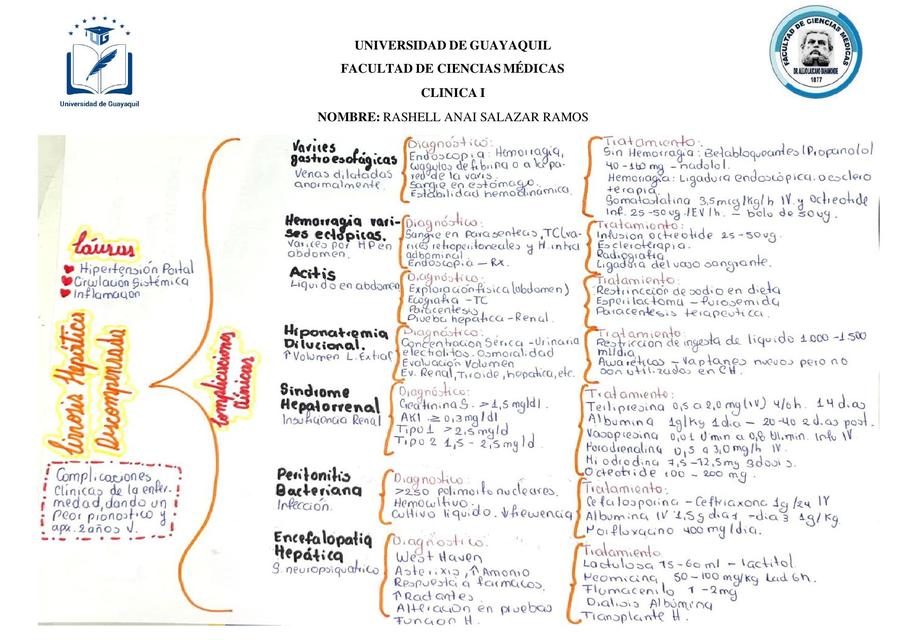 UNIVERSIDAD DE GUAYAQUIL
FACULTAD DE CIENCIAS MÉDICAS
CLINICA I
NOMBRE: RASHELL ANAI SALAZAR RAMOS
Universidad de Guayaquil
FACULTAD DE CIENCIAS MÉDICAS
DR. ALEJO LASCANO BAHAMONDE
1877
Cirrosis Hepática
Descompensada
Causas
Hipertensión Portal
Circulación Sistémica
Inflamación
Complicaciones
Clínicas de la enfer-
medad, dando un
peor pronostico y
apx. 2 años V.
Complicaciones
clínicas
Varices
gastroesofágicas
Venas dilatadas
anormalmente.
Diagnóstico:
Endoscopia: Hemorragia,
coagulos de fibrina o a la pa-
red de la varis.
Sangre en estómago.
Estabilidad hemodinámica.
Tratamiento:
Sin Hemorragia: Betabloqueantes (Propanolol
40-160 mg - nadolol.
Hemorragia: Ligadura endoscópica. o esclero
terapia.
Somatostatina 3,5mcg/kg/h IV. y Octreotide
Inf. 25-50 ug. IEV/h. - bolo de 50 ug.
Hemorragia vari-
ses ectópicas.
Varices por HP en
abdomen.
Diagnóstico:
Sangre en parasentesis, TC (va-
rices retroperitoneales y H. intra
abdominal
Endoscopia - RX.
Tratamiento:
Infusion octreotide 25-50ug.
Escleroterapia.
Radiografia
Ligadura del vaso sangrante.
Acitis
Liquido en abdomen
Diagnóstico:
Exploración física (abdomen)
Ecografia - TC
Paracentesis
Prueba hepática - Renal.
Tratamiento:
Restrincción de sodio en dieta
Esperilactoma - furosemida
Paracentesis terapeutica.
Hiponatremia
Dilucional.
↑ Volumen L. Extrar
Diagnóstico:
Concentración Sérica - Urinaria
electrolitos. Osmoralidad
Evaluación Volumen
Ev. Renal, Tiroide, hepatica, etc.
Tratamiento:
Restriccion de ingesta de líquido 1000 - 1500
ml/dia.
Awareticos - Vaptanes nuevos pero no
son utilizados en CH.
Sindrome
Hepatorrenal
Insuficiencia Renal
Diagnóstico:
Creatinina S. > 1,5 mg/dl.
AKI ≥ 0,3 mg/dl
Tipo 1 > 2,5 mg/d
Tipo 2 1,5 - 2,5 mg/d.
Tratamiento:
Terlipresina 0,5 a 2,0 mg (IV) 4/6h. 14 dias
Albumina 1g/kg 1 dia - 20-40 2 dias post.
Vasopresina 0,01 U min a 0,8 U/min. Infu IV
Noradrenalina 0,5 a 3,0 mg/h IV.
Midodrina 7,5-12,5mg 3 dosis.
Octeotride 100 - 200 mg.
Peritonitis
Bacteriana
Infección.
Diagnostico:
>250 polimorfo nucleares.
Hemocultivo.
Cultivo liquido. ↓ frecuencia
Tratamiento:
Cefalosporina - Ceftriaxona 1g/24 IV
Albumina IV 1,5 g dia 1 - dia 3 1g/kg.
Norfloxacino 400 mg/dia.
Encefalopatia
Hepática
S. neuropsiquatrico
Diagnóstico:
West Haven
Asterixis, ↑ Amonio
Respuesta a farmacos.
↑ Radantes.
Alteración en pruebas
Funcion H.
Tratamiento:
Lactulosa 15-60 ml - lactitol.
Neomicina 50 - 100 mg/kg cad 6h.
Flumacenilo 1 - 2mg
Dialisis Albúmina
Transplante H.